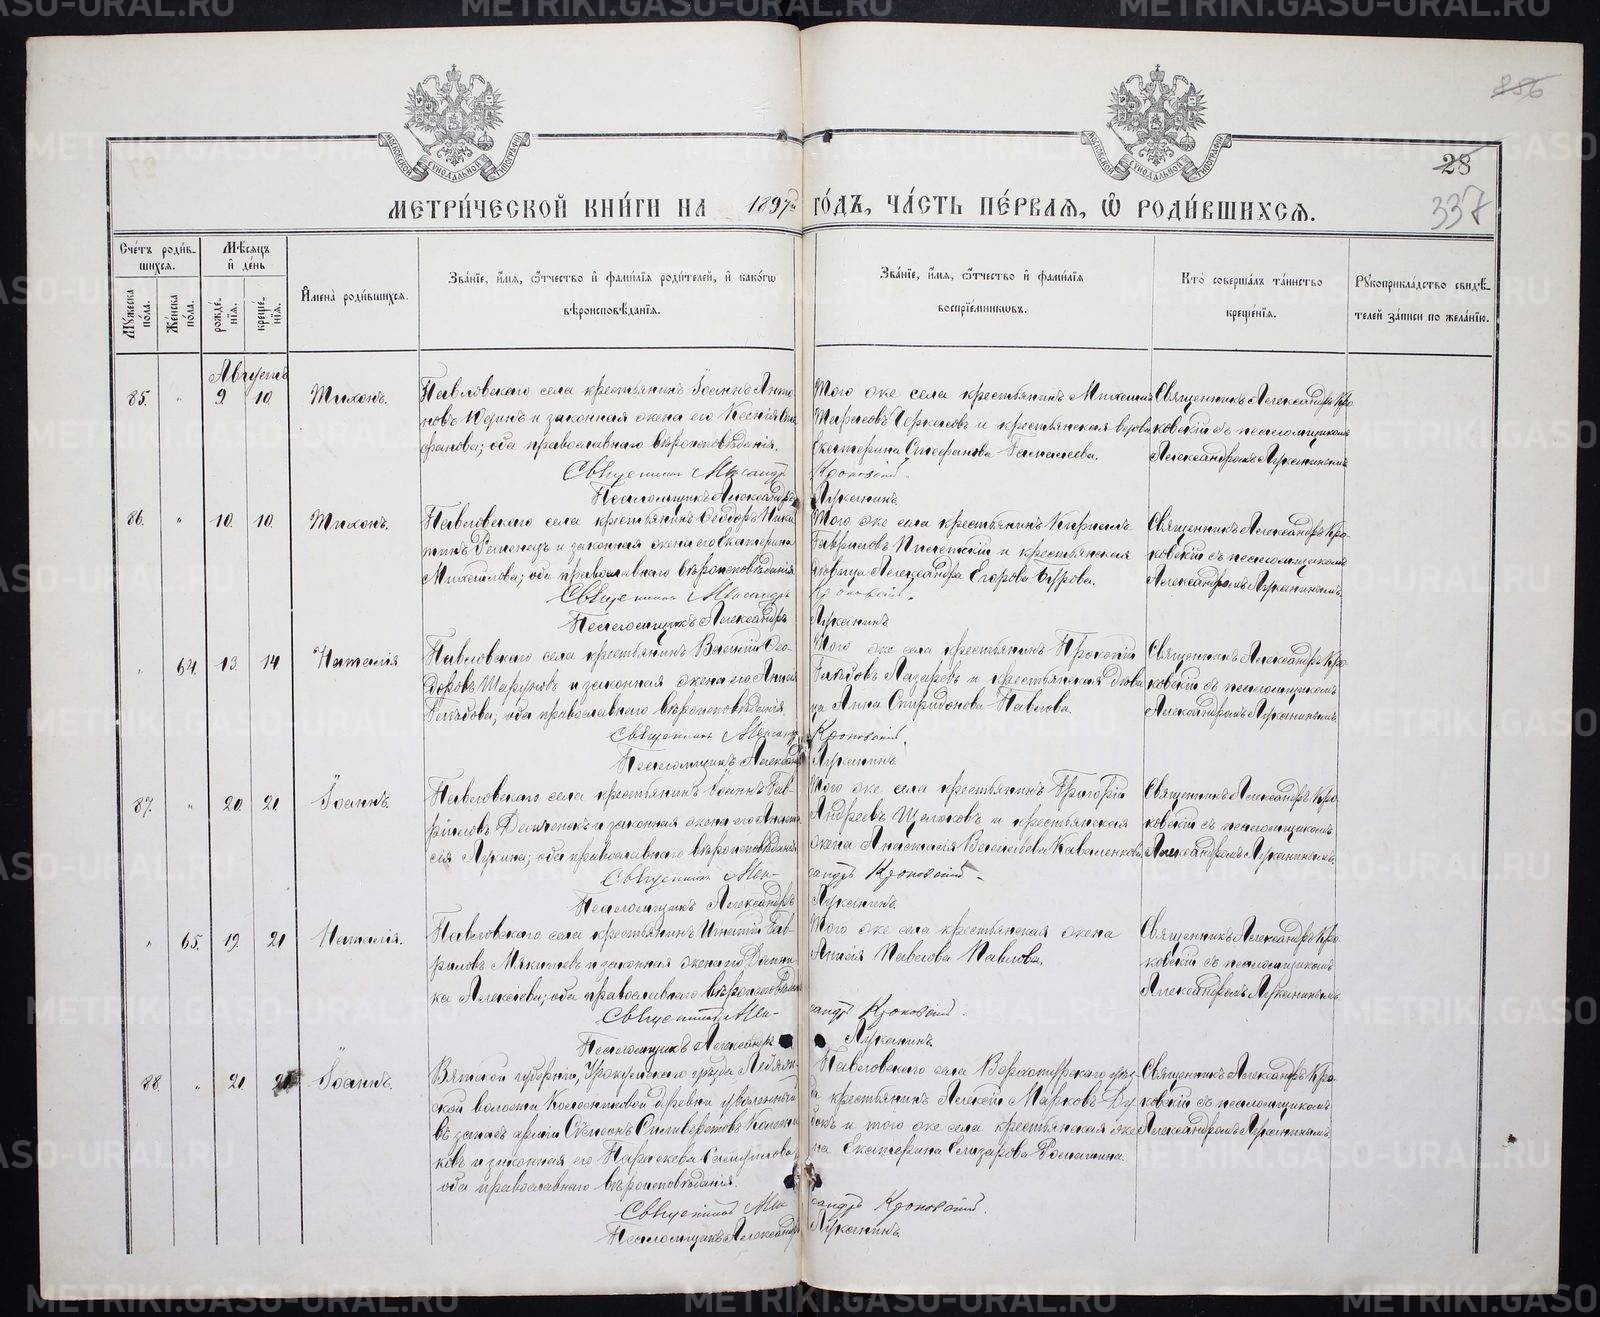 856
28
337
МЕТРИ́ЧЕСКОЙ КНИ́ГИ НА 1897й ГО́ДЪ, ЧА́СТЬ ПЕ́РВАЯ, Ѡ РОДИ́ВШИХСЯ.
Сче́тъ роди́в-
шихся.
Му́жеска по́ла.
Же́нска по́ла.
Мѣ́сяцъ
и де́нь
рожде́-
нїя.
креще́-
нїя.
Имена̀ роди́вшихся.
Зва́нїе, и́мя, ѻ́тчество и фами́лїя роди́телей, и како́гѡ
вѣроисповѣ́данїя.
Зва́нїе, и́мя, ѻ́тчество и фами́лїя
воспрїе́мникѡвъ.
Кто̀ соверша́лъ та́инство
креще́нїя.
Рꙋкоприкла́дство свидѣ́-
телей за́писи по жела́нїю.
Августъ
85. " 9 10. Тихонъ.
Павловскаго села крестьянинъ Іоаннъ Анти-
повъ Юдинъ и законная жена его Ксенія Сте-
фанова; оба православнаго вѣроисповѣданія.
Священникъ Александръ Кроковскій.
Псаломщикъ Александръ Луканинъ
Того же села крестьянинъ Михаилъ
Тарасовъ и крестьянская вдова
Екатерина Стефанова
Священникъ Александръ Кро-
ковскій съ псаломщикомъ
Александромъ Луканинымъ
86. " 10. 10. Тихонъ.
Павловскаго села крестьянинъ Ѳеодоръ Ники-
тинъ и законная жена его Екатерина
Михаилова; оба православнаго вѣроисповѣданія
Священникъ Александръ Кроковскій.
Псаломщикъ Александръ Луканинъ
Того же села крестьянинъ Кириллъ
Гавриловъ и крестьянская
дѣвица Александра Егорова Бурова.
Священникъ Александръ Кро-
ковскій съ псаломщикомъ
Александромъ Луканинымъ.
" 64. 13. 14 Наталія
Павловскаго села крестьянинъ Василій Ѳео-
доровъ Шаруновъ и законная жена его
оба православнаго вѣроисповѣданія
Священникъ Александръ Кроковскій.
Псаломщикъ Александръ Луканинъ
Того же села крестьянинъ Прокопій
Лазаревъ и крестьянская дѣви-
ца Анна Спиридонова Павлова.
Священникъ Александръ Кро-
ковскій съ псаломщикомъ
Александромъ Луканинымъ
87. " 20. 21 Іоаннъ.
Павловскаго села крестьянинъ Іоаннъ Гав-
риловъ и законная жена его Анаста-
сія Лукина; оба православнаго вѣроисповѣданія
Священникъ Александръ Кроковскій.
Псаломщикъ Александръ Луканинъ.
Того же села крестьянинъ Григорій
Андреевъ Щелоковъ и крестьянская
жена Анастасія Васильева Коваленкова.
Священникъ Александръ Кро-
ковскій съ псаломщикомъ
Александромъ Луканинымъ.
" 65. 19. 21 Наталія.
Павловскаго села крестьянинъ Игнатій Гав-
риловъ Мякишевъ и законная жена его Домни-
ка Алексіева; оба православнаго вѣроисповѣданія
Священникъ Александръ Кроковскій.
Псаломщикъ Александръ Луканинъ.
Того же села крестьянская жена
Павлова Павлова.
Священникъ Александръ Кро-
ковскій съ псаломщикомъ
Александромъ Луканинымъ.
88. " 21 21 Іоаннъ.
Вятской губерніи, уѣзда,
ской волости Колесниковой деревни уволенный
въ запасъ арміи Сѵмеонъ Силиверстовъ Колесни-
ковъ и законная его Параскева Самуилова;
оба православнаго вѣроисповѣданія.
Священникъ Александръ Кроковскій.
Псаломщикъ Александръ Луканинъ.
Павловскаго села Верхотурскаго уѣз-
да крестьянинъ Алексій Марковъ
и того же села крестьянская же-
на Екатерина Елизарова
Священникъ Александръ Кро-
ковскій съ псаломщикомъ
Александромъ Луканинымъ
METRIKI.GASO-URAL.RU